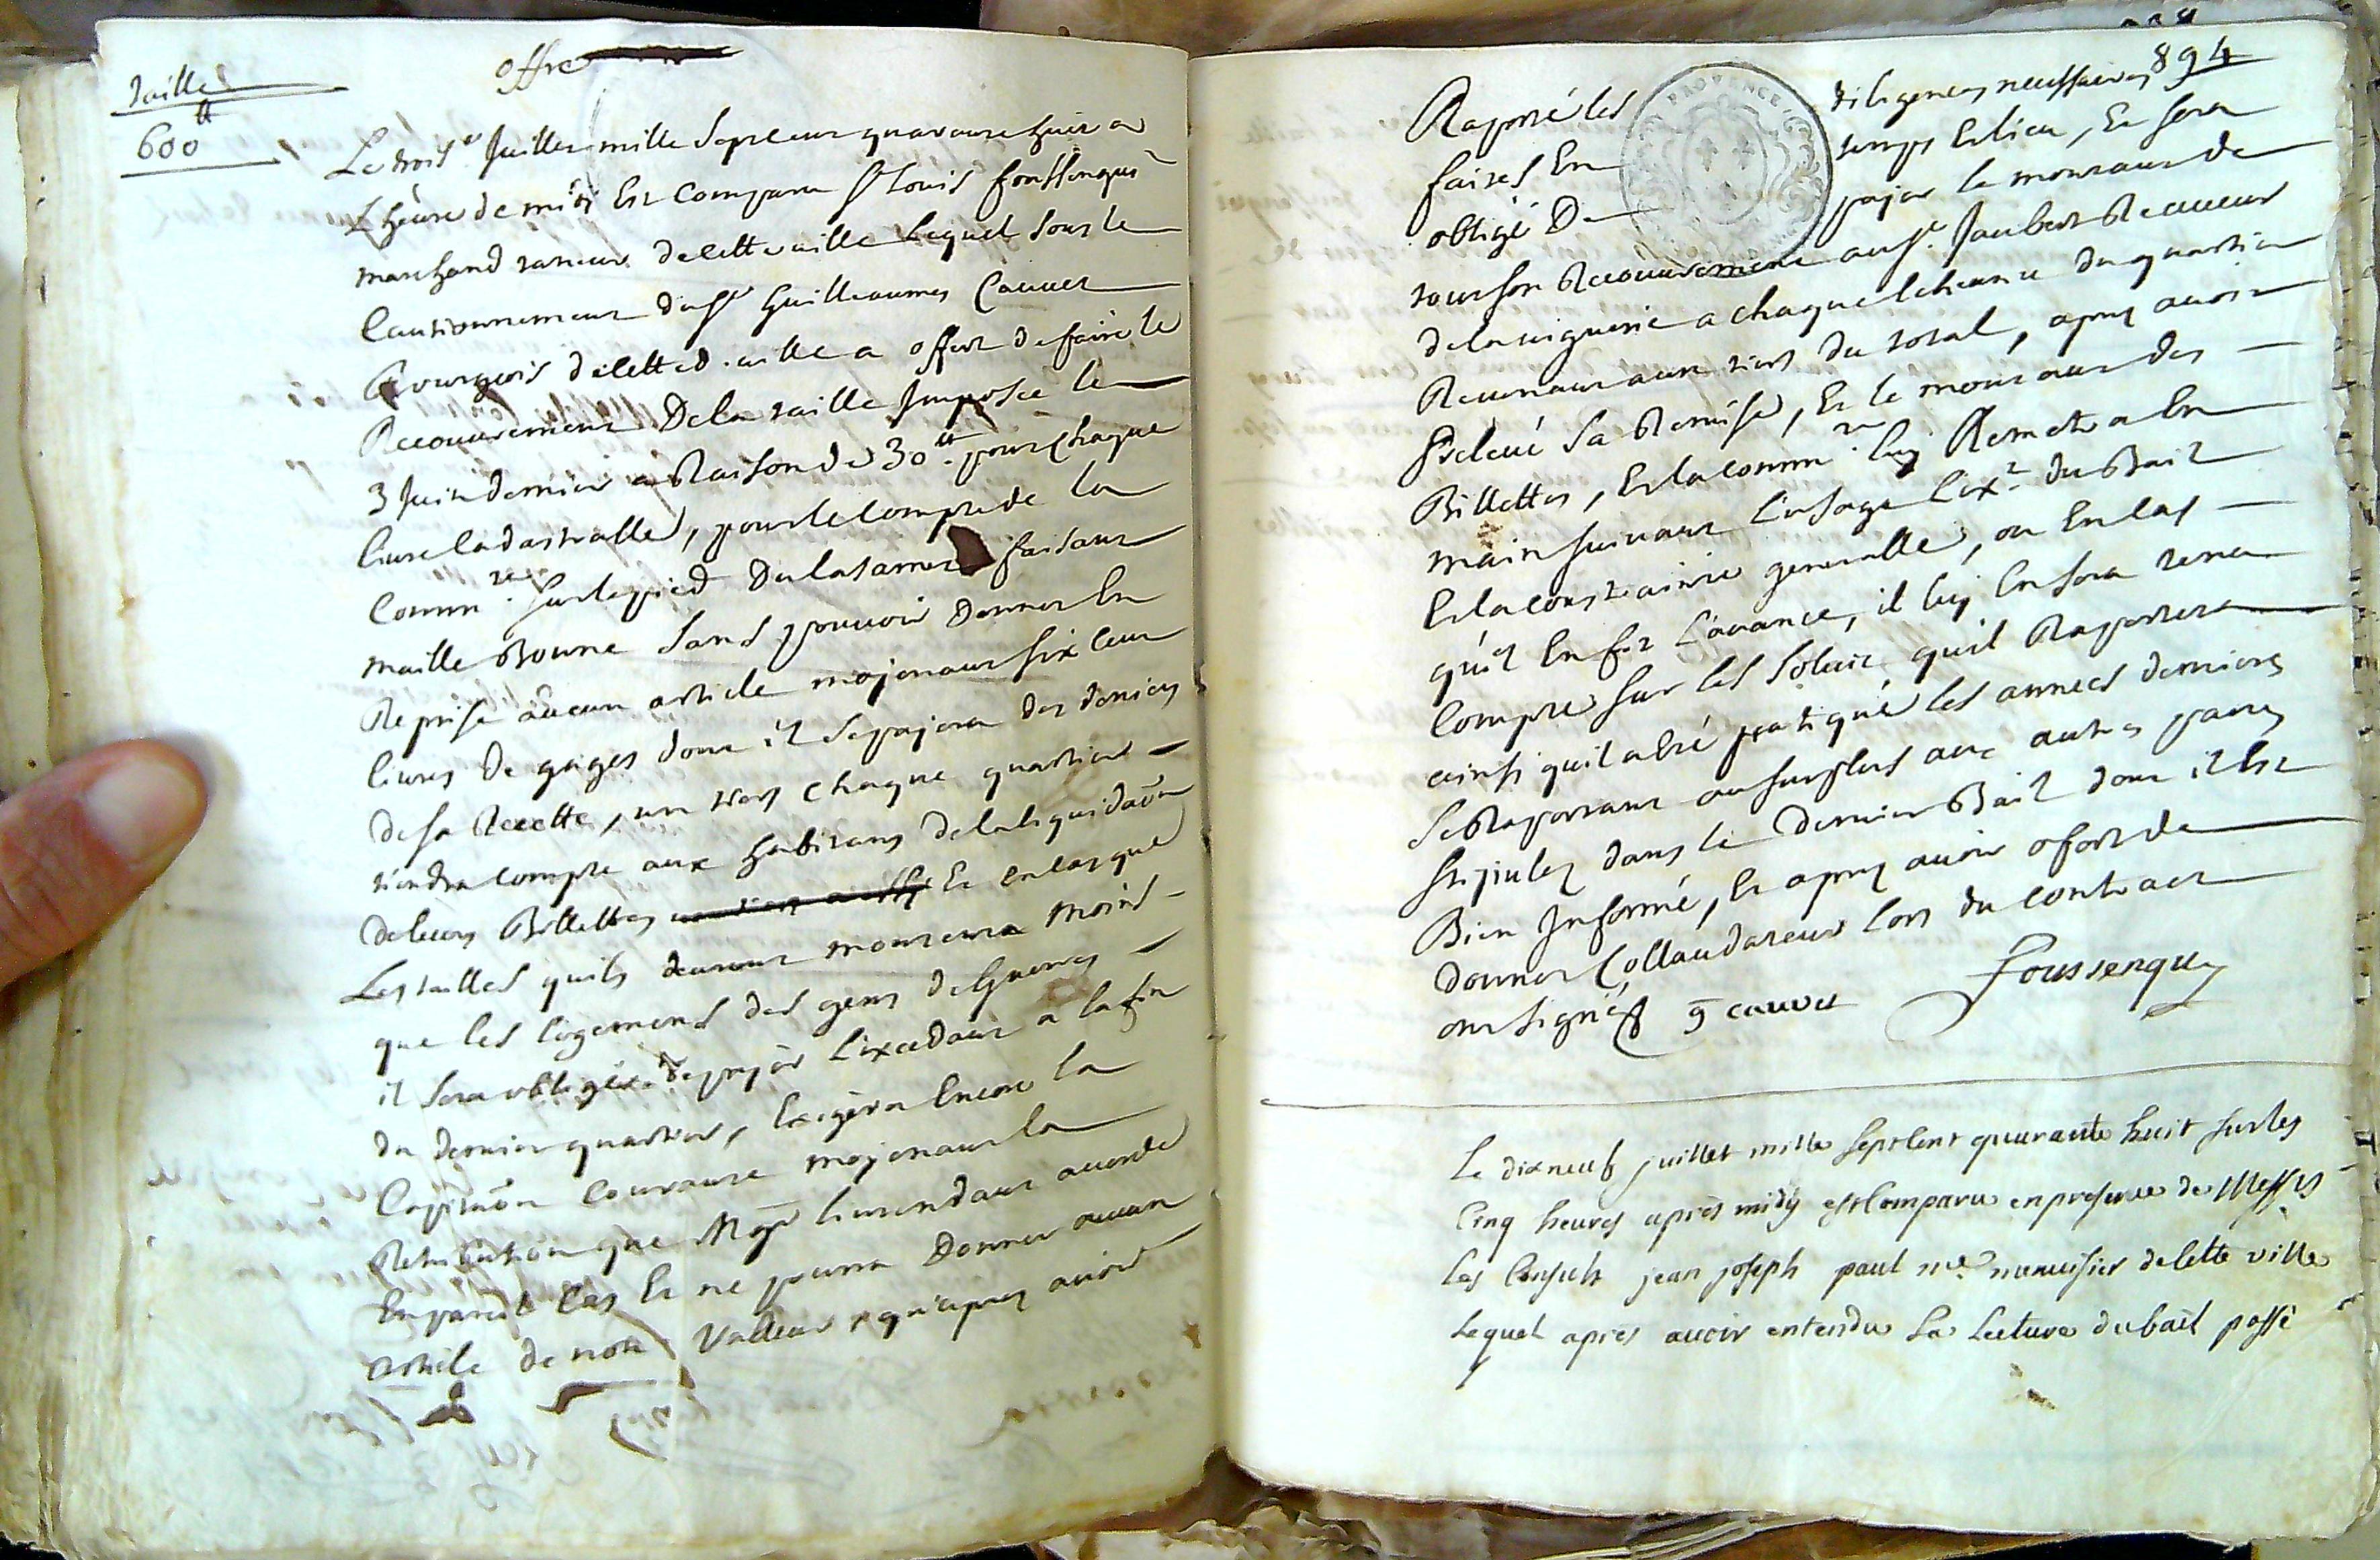 offre
Taille
600 tt
Le trois.e Juillet mille Sept cent quarante huit a
L'heure de midi Est Comparu Sr Louis foussenqui
marchand taneur de cette ville Lequel sous le
Cautionnement du Sr Guilleaumes Cauvet
Bourgeois de cette d. ville a offert de faire le
Recouvrement De la taille Imposée le
3 Juin dernier a Raison de 30 tt. pour Chaque
livre Cadastralle, pour le Compte de la
Comm.té sur le pied Du Casernet faisant
maille Bonne Sans pouvoir Donner En
Reprise aucun article mojenant six Cent
livres de gages dont il Se pajera des deniers
de sa Recette, un tiers Chaque quartier
tiendra Compte aux habitans de la liquidaõn
de leurs Billettes Et en cas que
Les tailles quils devront monteront moins
que les logemens des gens de Guerres
il Sera obligé de pajer L'excedant a la fin
du dernier quartier, Exigera Encore la
Capitaõn Courante mojenant la
Retribution que Mgr L'intendant accorde
En pareil Cas Et ne pourra Donner aucun
article de non Valleur, qu'apres avoir
894
Raporté les diligences necessaires
faites En temps Et lieu, Et sera
obligé De pajer le montant de
tout son Recouvrement au Sr. Jaubert Receveur
de la viguerie a chaque Echeance du quartier
Revenant a un tiers du total, apres avoir
Prelevé Sa Remise, Et le montant des
Billettes, Et la Comm.té luy Remettra En
main suivant L'usage L'ex.t du Bail
Et la Contrainte generalle, ou En Cas
qu'il En fit L'avance, il luy En sera tenu
Compte sur les Soluit quil Raportera
ainsi quil a Eté pratiqué les années dernieres
Se Raportant au surplus aux autres pactes
stipulez dans le dernier Bail dont il Est
Bien Informé, Et apres avoir ofert de
donner Collaudateur lors du Contract
ont signéz g cauvet Foussenquy
Le dix neuf juillet mille sept Cent quarante huit sur les
Cinq heures après midy est Comparu en presence de Messrs
Les Consuls jean joseph paul me. menuisier de Cette ville
Lequel après avoir entendu La Lecture du bail passé